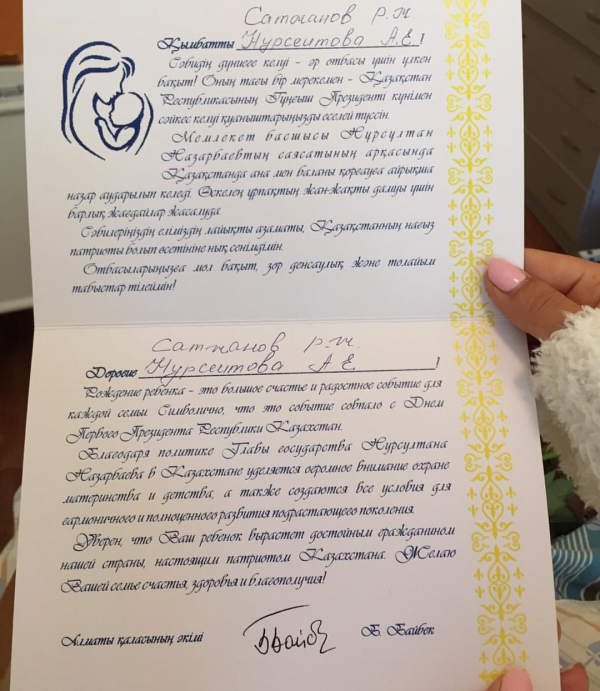 Сатжанов Р.Ж.
Қымбатты Нурсеитова А.Е.!
Сәбидің дүниеге келуі - әр отбасы үшін үлкен
бақыт! Оның тағы бір мерекемен - Қазақстан
Республикасының Тұңғыш Президенті күнімен
сәйкес келуі қуаныштарыңызды еселей түссін.
Мемлекет басшысы Нұрсұлтан
Назарбаевтың саясатының арқасында
Қазақстанда ана мен баланы қорғауға айрықша
назар аударылып келеді. Өскелең ұрпақтың жан-жақты дамуы үшін
барлық жағдайлар жасалуда.
Сәбилеріңіздің еліміздің лайықты азаматы, Қазақстанның нағыз
патриоты болып өсетініне нық сенімдімін.
Отбасыларыңызға мол бақыт, зор денсаулық және толайым
табыстар тілеймін!
Сатжанов Р.Ж.
Дорогие Нурсеитова А.Е. !
Рождение ребенка - это большое счастье и радостное событие для
каждой семьи. Символично, что это событие совпало с Днем
Первого Президента Республики Казахстан.
Благодаря политике Главы государства Нурсултана
Назарбаева в Казахстане уделяется огромное внимание охране
материнства и детства, а также создаются все условия для
гармоничного и полноценного развития подрастающего поколения.
Уверен, что Ваш ребенок вырастет достойным гражданином
нашей страны, настоящим патриотом Казахстана. Желаю
Вашей семье счастья, здоровья и благополучия!
Алматы қаласының әкімі Б. Байбек